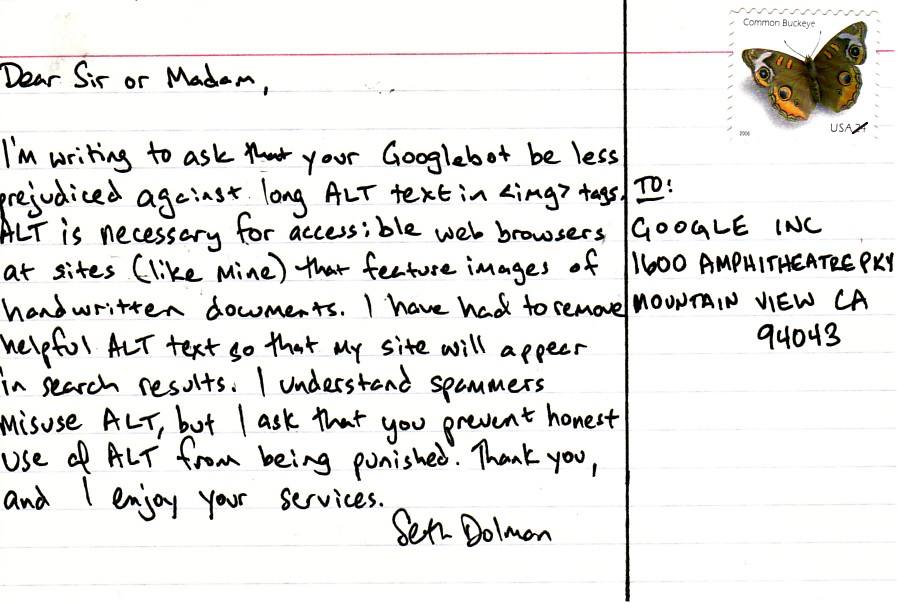 Dear Sir or Madam,
I'm writing to ask that your Googlebot be less
prejudiced against long ALT text in <img> tags.
ALT is necessary for accessible web browsers
at sites (like mine) that feature images of
handwritten documents. I have had to remove
helpful ALT text so that my site will appear
in search results. I understand spammers
misuse ALT, but I ask that you prevent honest
use of ALT from being punished. Thank you,
and I enjoy your services.
Seth Dolman
Common Buckeye
2006
USA 24
TO:
GOOGLE INC
1600 AMPHITHEATRE PKY
MOUNTAIN VIEW CA
94043